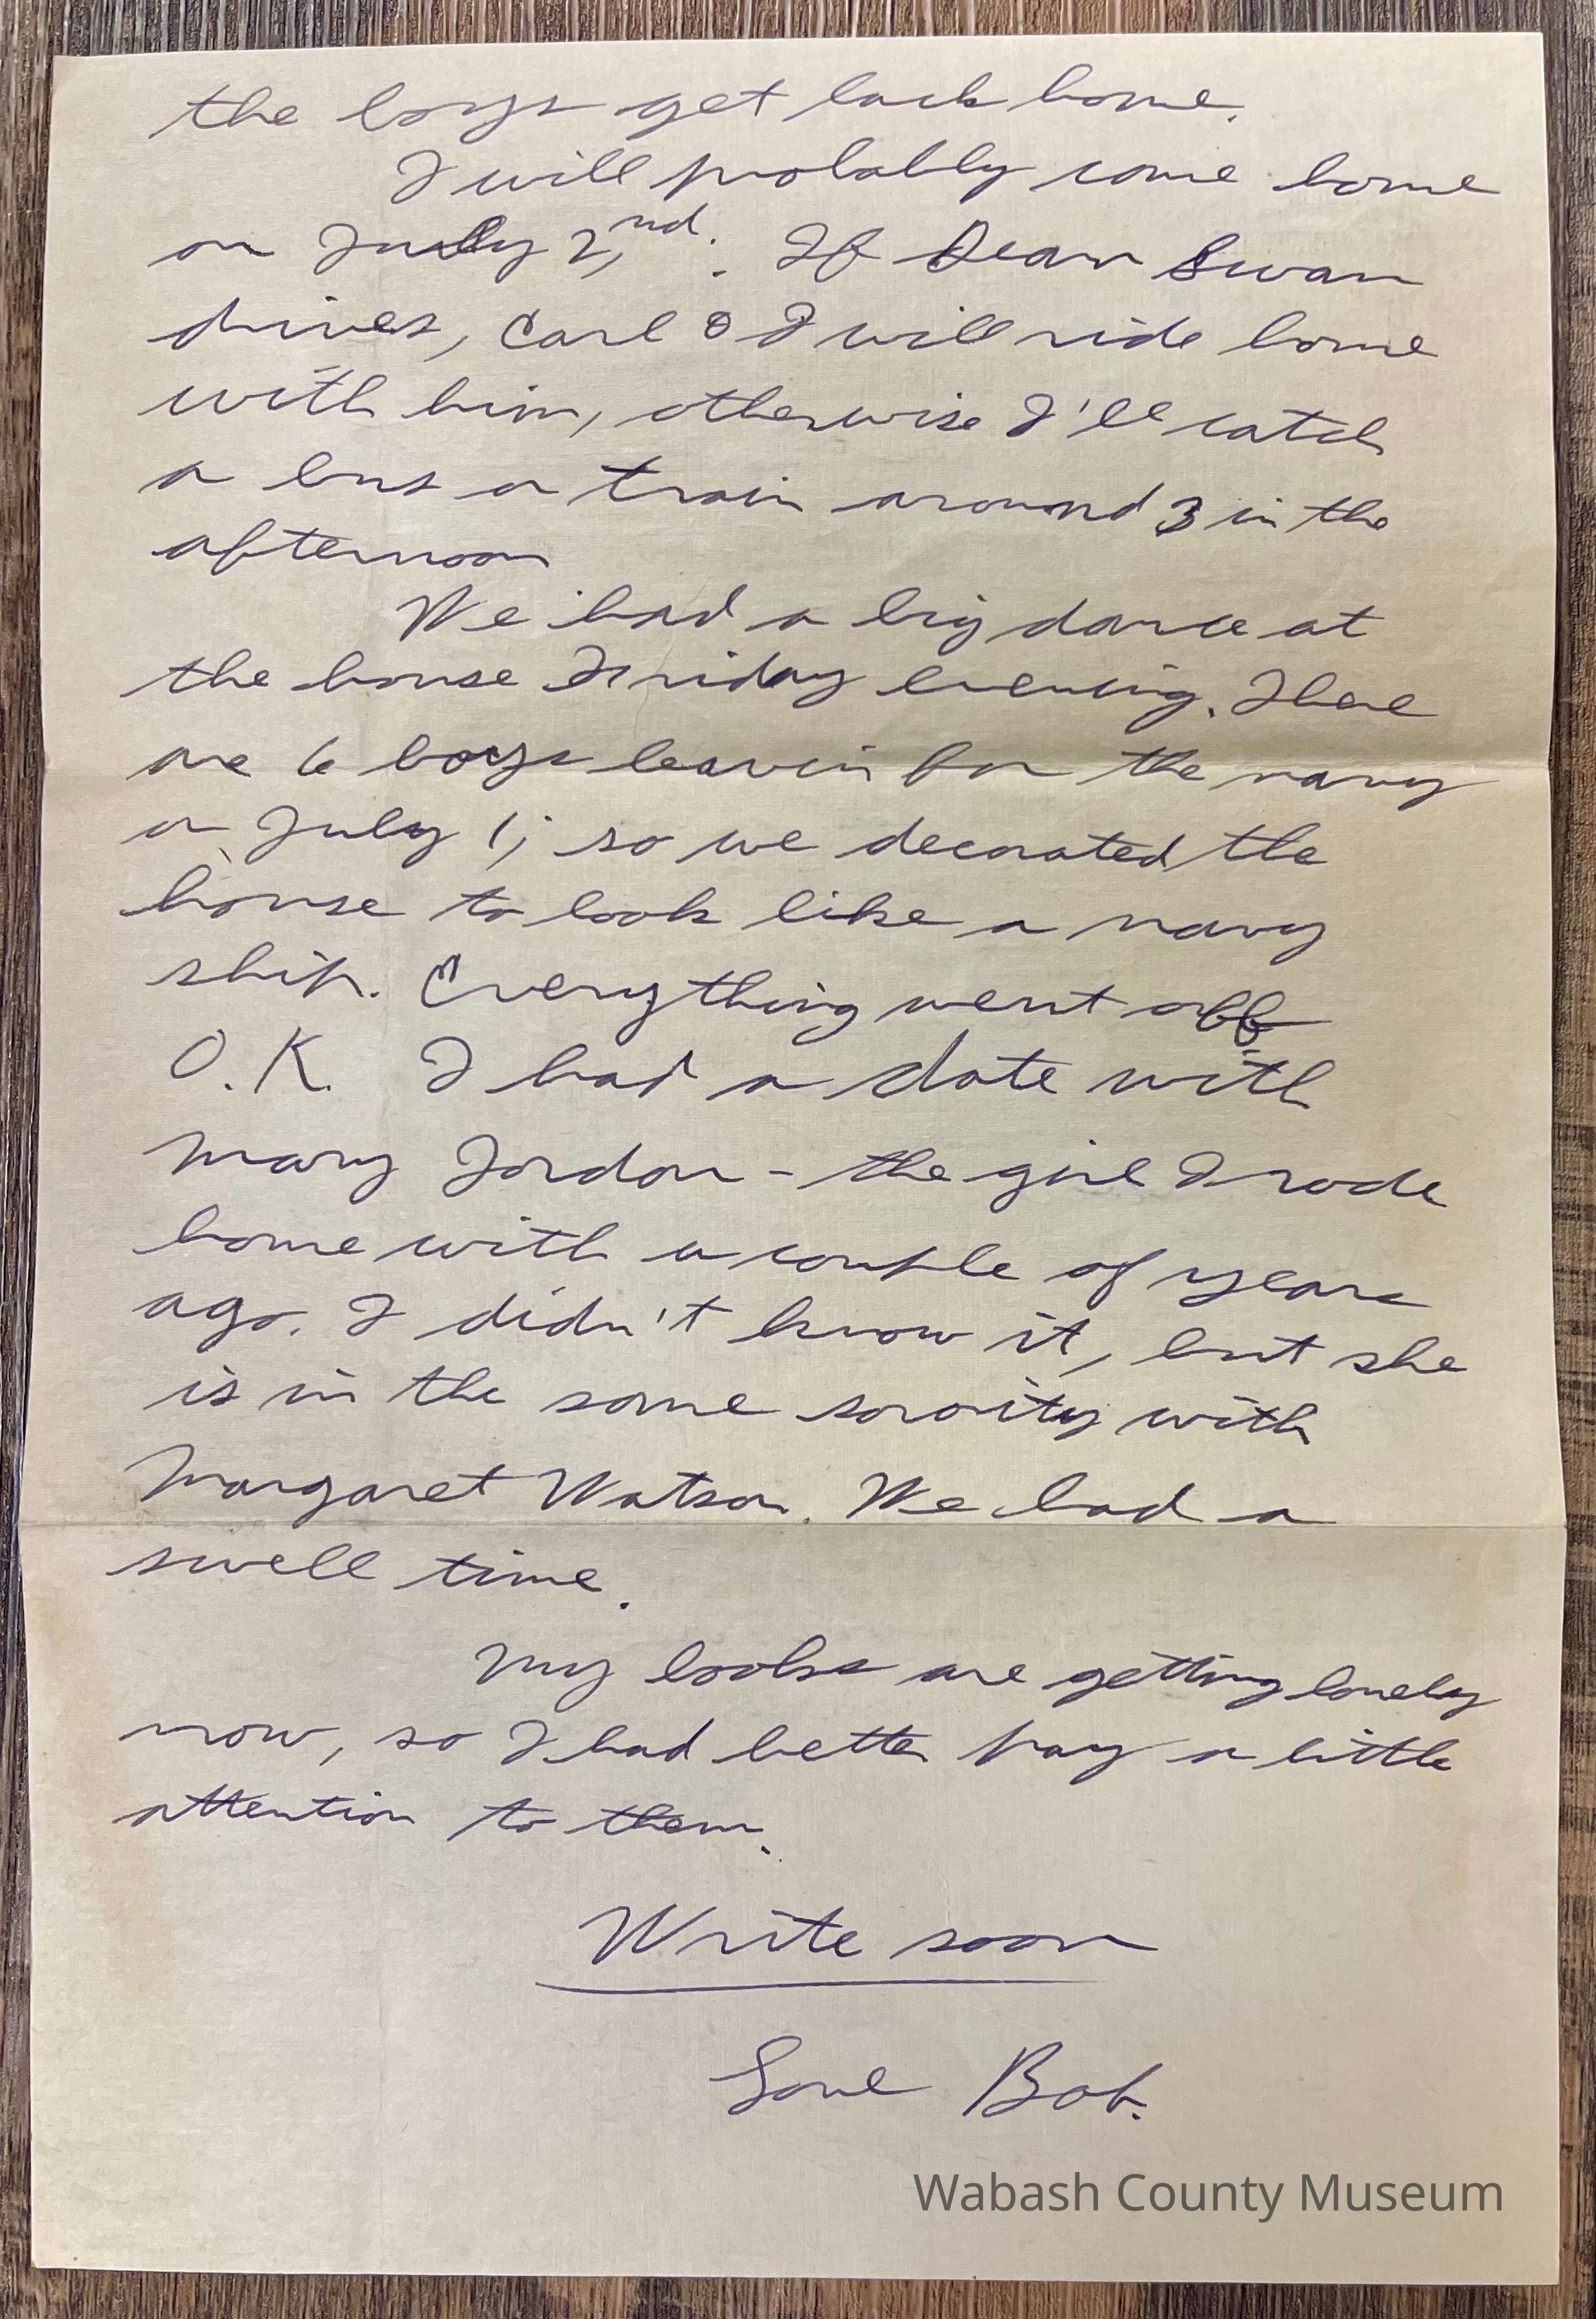 the boys get back home.
I will probably come home
on July 2,nd. If Dean Swan
drives, Carl & I will ride home
with him, otherwise I'll catch
a bus or train around 3 in the
afternoon
We had a big dance at
the house Friday evening. There
are 6 boys leavin for the navy
on July 1; so we decorated the
house to look like a navy
ship. Everything went off
O.K. I had a date with
Mary Jordan - the girl I rode
home with a couple of years
ago. I didn't know it, but she
is in the same sorority with
Margaret Watson. We had a
swell time.
My books are getting lonely
now, so I had better pay a little
attention to them.
Write soon
Love Bob.
Wabash County Museum